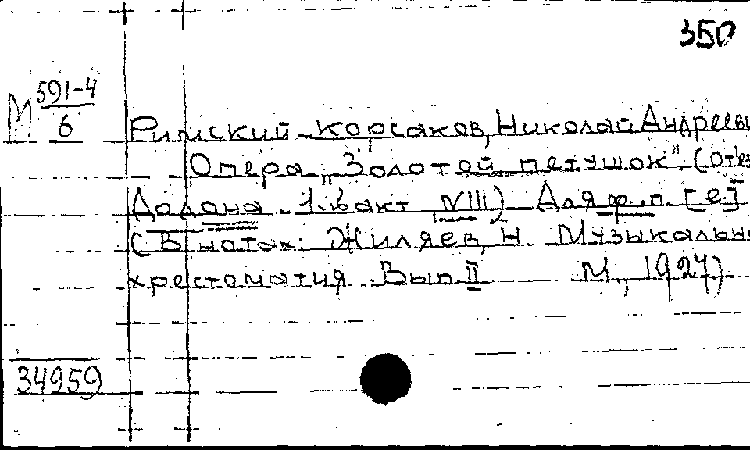 350
М 591-4/6
Римский-Корсаков, Николай Андрееви
Опера „Золотой петушок" (отв
Додона 1й акт № III) Для ф.п. [е.]
(В нотах: Жиляев, Н. Музыкальн
хрестоматия Вып. II М., 1927)
34959